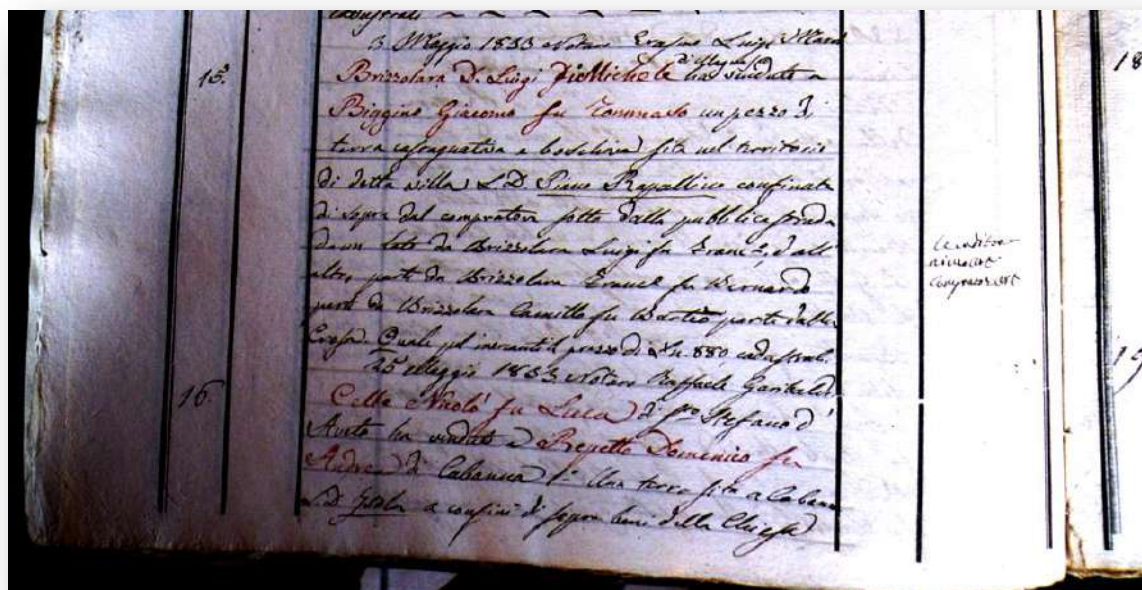 3 Maggio 1833 Notaro Erasmo Luigi
15.
Brizzolara D. Luigi Di Michele ha venduto a
Biggino Giacomo fu Tommaso un pezzo di
terra castagnativa e boschiva sita nel territorio
di detta villa L. D. Piano Rapallino confinata
di sopra dal compratore sotto dalla pubblica strada
da un lato da Brizzolara Luigi fu Franc.º, e dall'
altro parte da Brizzolara Eranel fu Bernardo
parte da Brizzolara Camillo fu parte dalla
Quale pel mercantil prezzo di Ln. 880 cadastrali.
25 Maggio 1833 Notaro Raffaele Garibaldi
16.
Cella Nicolò fu Luca di S.to Stefano d'
Aveto ha venduto a Repetto Domenico fu
Andrea di Cabanna 1.º Una terra sita a Cabana
L. D. Isola a confini di sopra beni della Chiesa
18
19